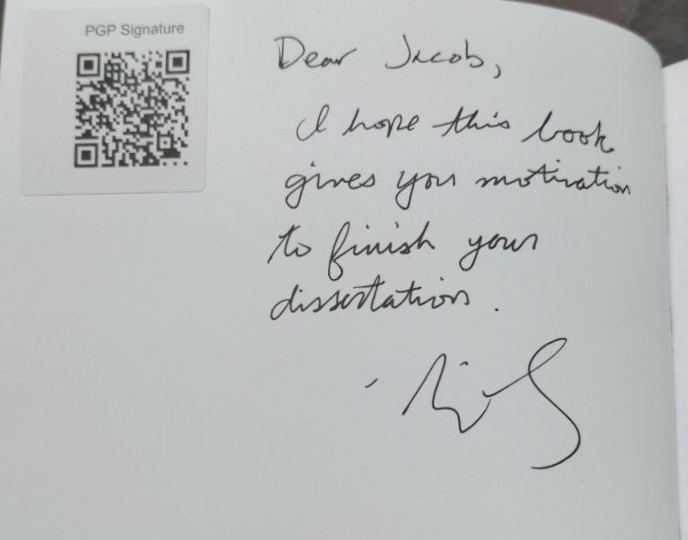 PGP Signature
Dear Jacob,
I hope this book
gives you motivation
to finish your
dissertation.